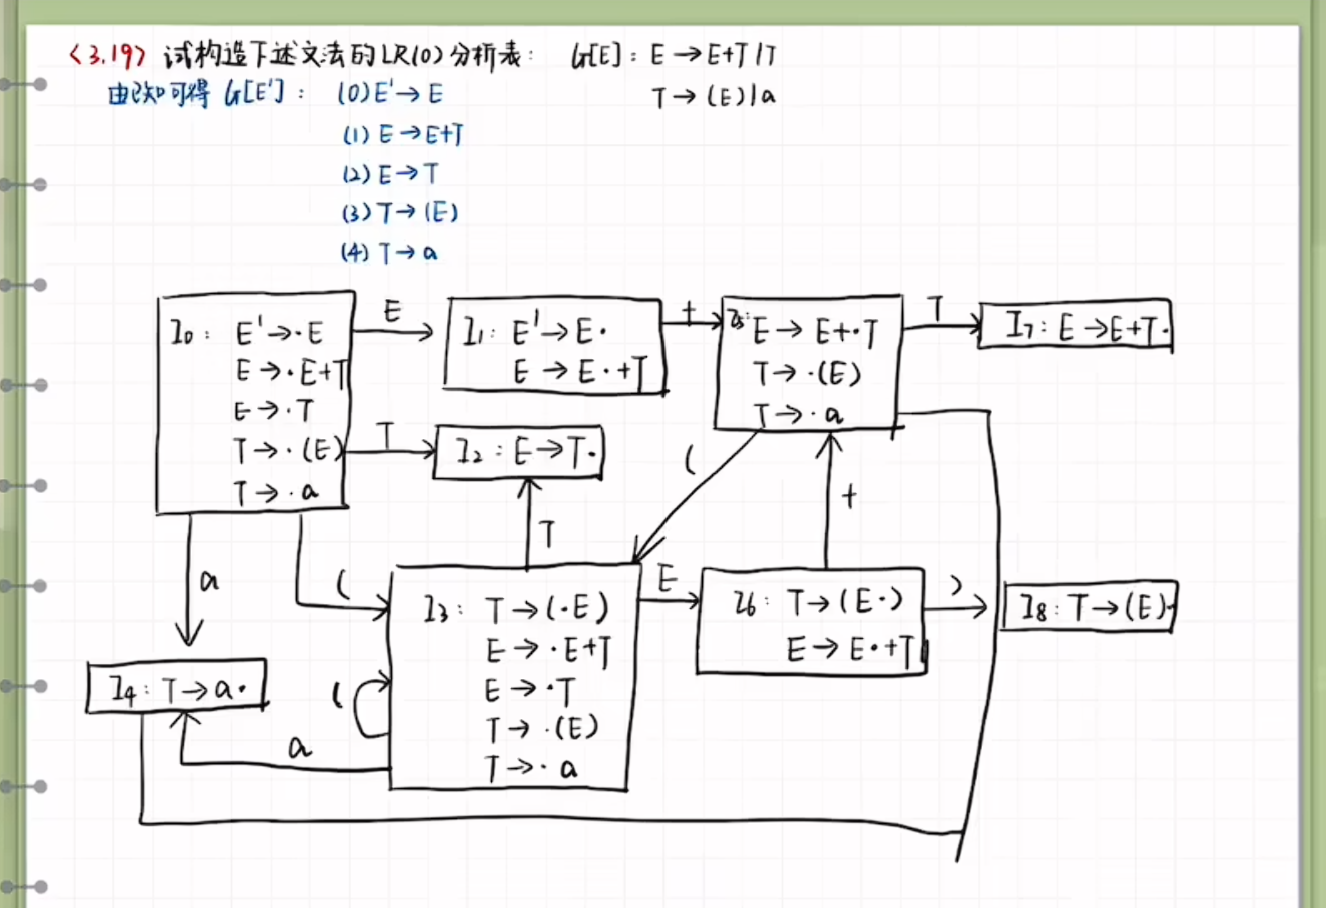 <3.19> 试构造下述文法的LR(0)分析表: G[E]: E→E+T|T
T→(E)|a
由已知可得 G[E']: (0) E'→E
(1) E→E+T
(2) E→T
(3) T→(E)
(4) T→a
I0: E'→·E
E→·E+T
E→·T
T→·(E)
T→·a
E
I1: E'→E·
E→E·+T
+
I5: E→E+·T
T→·(E)
T→·a
T
I7: E→E+T·
T
I2: E→T·
(
+
T
a
(
I3: T→(·E)
E→·E+T
E→·T
T→·(E)
T→·a
E
I6: T→(E·)
E→E·+T
)
I8: T→(E)·
I4: T→a·
(
a